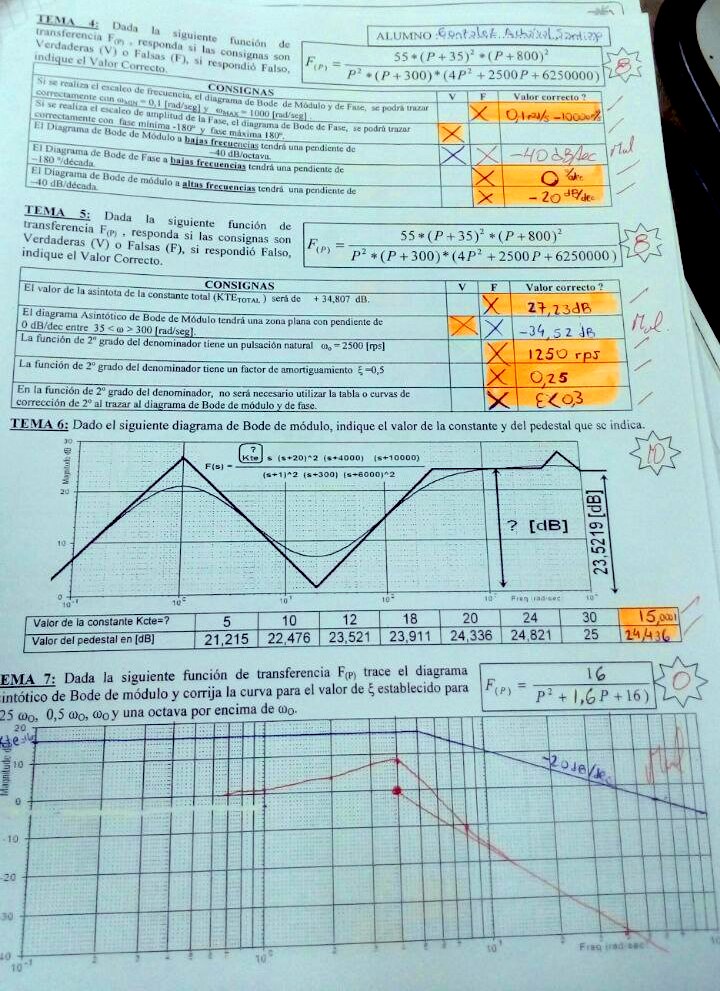 TEMA 4: Dada la siguiente función de
transferencia F(P) , responda si las consignas son
Verdaderas (V) o Falsas (F), si respondió Falso,
indique el Valor Correcto.
ALUMNO
F(P) = 55*(P+35)²*(P+800)² / P²*(P+300)*(4P²+2500P+6250000)
8
CONSIGNAS V F Valor correcto ?
Si se realiza el escaleo de frecuencia, el diagrama de Bode de Módulo y de Fase, se podrá trazar
correctamente con ωMIN = 0,1 [rad/seg] y ωMAX = 1000 [rad/seg] X
Si se realiza el escaleo de amplitud de la Fase, el diagrama de Bode de Fase, se podrá trazar
correctamente con fase mínima -180° y fase máxima 180°. X
El Diagrama de Bode de Módulo a bajas frecuencias tendrá una pendiente de
-40 dB/octava. X X -40 dB/dec Mal
El Diagrama de Bode de Fase a bajas frecuencias tendrá una pendiente de
-180 °/década. X 0 °/dec
El Diagrama de Bode de módulo a altas frecuencias tendrá una pendiente de
-40 dB/década. X -20 dB/dec
TEMA 5: Dada la siguiente función de
transferencia F(P) , responda si las consignas son
Verdaderas (V) o Falsas (F), si respondió Falso,
indique el Valor Correcto.
F(P) = 55*(P+35)²*(P+800)² / P²*(P+300)*(4P²+2500P+6250000)
8
CONSIGNAS V F Valor correcto ?
El valor de la asíntota de la constante total (KTETOTAL ) será de + 34,807 dB. X 27,23dB
El diagrama Asintótico de Bode de Módulo tendrá una zona plana con pendiente de
0 dB/dec entre 35 < ω > 300 [rad/seg]. X X -34,52 dB Mal
La función de 2º grado del denominador tiene un pulsación natural ωo = 2500 [rps] X 1250 rps
La función de 2º grado del denominador tiene un factor de amortiguamiento ξ =0,5 X 0,25
En la función de 2º grado del denominador, no será necesario utilizar la tabla o curvas de
corrección de 2º al trazar al diagrama de Bode de módulo y de fase. X ξ<0,3
TEMA 6: Dado el siguiente diagrama de Bode de módulo, indique el valor de la constante y del pedestal que se indica.
10
Magnitude dB
30
20
10
0
F(s) = ? Kte s (s+20)^2 (s+4000) (s+10000)
(s+1)^2 (s+300) (s+6000)^2
? [dB]
23,5219 [dB]
Freq (rad/sec)
Valor de la constante Kcte=? 5 10 12 18 20 24 30 15,0001
Valor del pedestal en [dB] 21,215 22,476 23,521 23,911 24,336 24,821 25 24,436
EMA 7: Dada la siguiente función de transferencia F(P) trace el diagrama
sintótico de Bode de módulo y corrija la curva para el valor de ξ establecido para
25 ωO, 0,5 ωO, ωO y una octava por encima de ωO.
F(P) = 16 / P² + 1,6P + 16)
0
Magnitude dB
20
10
0
-10
-20
-30
-20dB/dec
Mal
Freq (rad/sec)
10⁻¹ 10⁰ 10¹